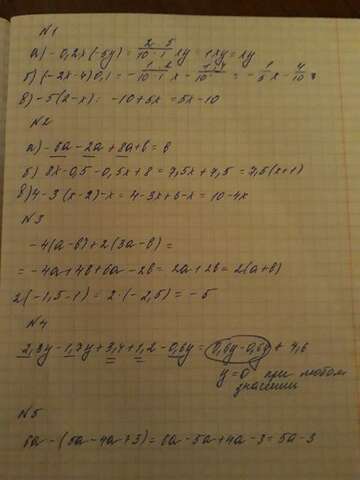 №1
а) -0,2x(-5y) = 2·5/10·1 xy = 1xy = xy
б) (-2x-4)0,1 = -1·2/10·1 x - 1·4/10 = -1/5 x - 4/10
в) -5(2-x) = -10+5x = 5x-10
№2
а) -6a-2a+8a+b = b
б) 8x-0,5-0,5x+8 = 7,5x+7,5 = 7,5(x+1)
в) 4-3(x-2)-x = 4-3x+6-x = 10-4x
№3
-4(a-b)+2(3a-b) =
= -4a+4b+6a-2b = 2a+2b = 2(a+b)
2(-1,5-1) = 2·(-2,5) = -5
№4
2,3y-1,7y+3,4+1,2-0,6y = 0,6y-0,6y+4,6
y=0 при любом
значении
№5
6a-(5a-4a+3) = 6a-5a+4a-3 = 5a-3